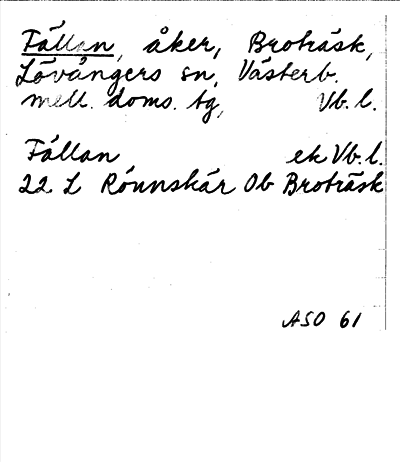 Fällan, åker, Broträsk,
Lövångers sn, Västerb.
mell. doms. tg, Vb. l.
Fällan ek Vb. l.
22 L Rönnskär Ob Broträsk
ASO 61